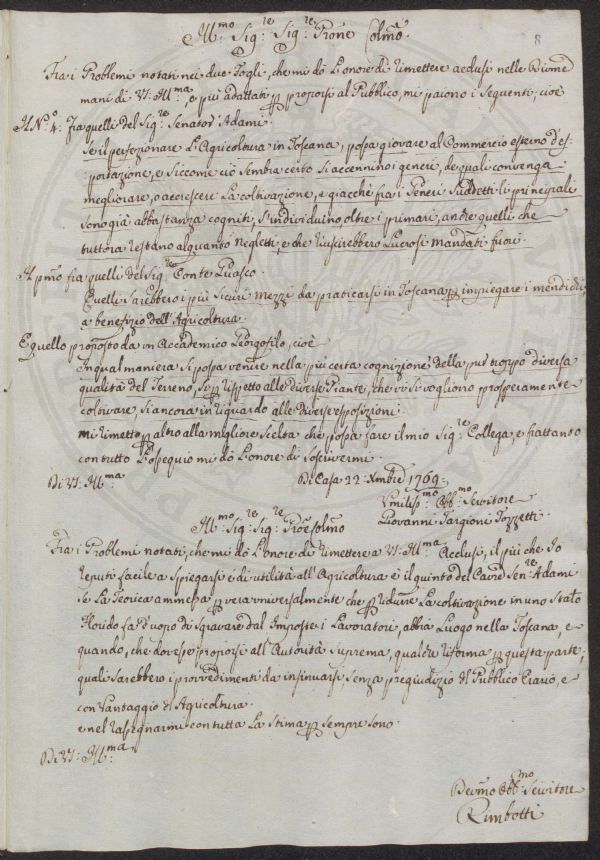 8
Ill:mo Sig:re Sig:re Prone Colmo
Fra i Problemi notati nei due Fogli, che mi dò L'onore di rimettere acclusi nelle Riveme
mani di VS: Ill:ma, e più adattati p proporsi al Pubblico, mi paiono i seguenti, cioè
Il N:o 4: fra quelli del Sig:re Senator Adami.
Se il perfezionare L'Agricoltura in Toscana, possa giovare al Commercio esterno d'es:
portazione, e siccome ciò sembra certo si accennino i generi, de quali convenga
megliorare, o accrescere La coltivazione, e giacchè fra i Generi suddetti li principali
sono già abbastanza cogniti, s'individuino, oltre i primari, anche quelli che
tuttora restano alquanto negletti, e che riuscirebbero Lucrosi mandati fuori.
Il pmo fra quelli del Sig:re Conte Luasco.
Quelli sarebbero i più sicuri mezzi da praticarsi in Toscana p impiegare i mendichi
a benefizio dell'Agricoltura.
E quello proposto da un Accademico Georgofilo, cioè
In qual maniera si possa venire nella più certa cognizione della pur troppo diversa
qualità del Terreno, se p rispetto alle diverse Piante, che vi si vogliono prosperamente
coltivare, si ancora in riguardo alle diverse esposizioni.
Mi rimetto p altro alla migliore scelta che possa fare il mio Sig:re Collega, e frattanto
con tutto L'ossequio mi dò L'onore di soscrivermi
Di VS: Ill:ma
Di Casa 22: Xmbre 1769:
Umiliss:mo Obb:mo Servitore
Giovanni Targioni Tozzetti.
Ill:mo Sig:re Sig:re Proe Colmo
Frà i Problemi notati, che mi dò L'onore di rimettere a VS: Ill:ma Acclusi, il più che Io
reputi facile a spiegarsi e di utilità all'Agricoltura è il quinto del Cavre Sen:re Adami
Se La Teorica ammessa p vera universalmente che p ridurre La coltivazione in uno stato
florido fa d'uopo di sgravare dal Imposte i Lavoratori, abbia Luogo nella Toscana, e
quando, che dovesse proporsi all'Autorità suprema, qualche riforma p questa parte;
quali sarebbero i provvedimenti da insinuarsi senza pregiudizio del Pubblico Erario, e
con vantaggio dl Agricoltura.
e nel rassegnarmi con tutta La stima p sempre sono.
Di VS: Ill:ma
Devmo Obb:mo Servitore
Rimbotti